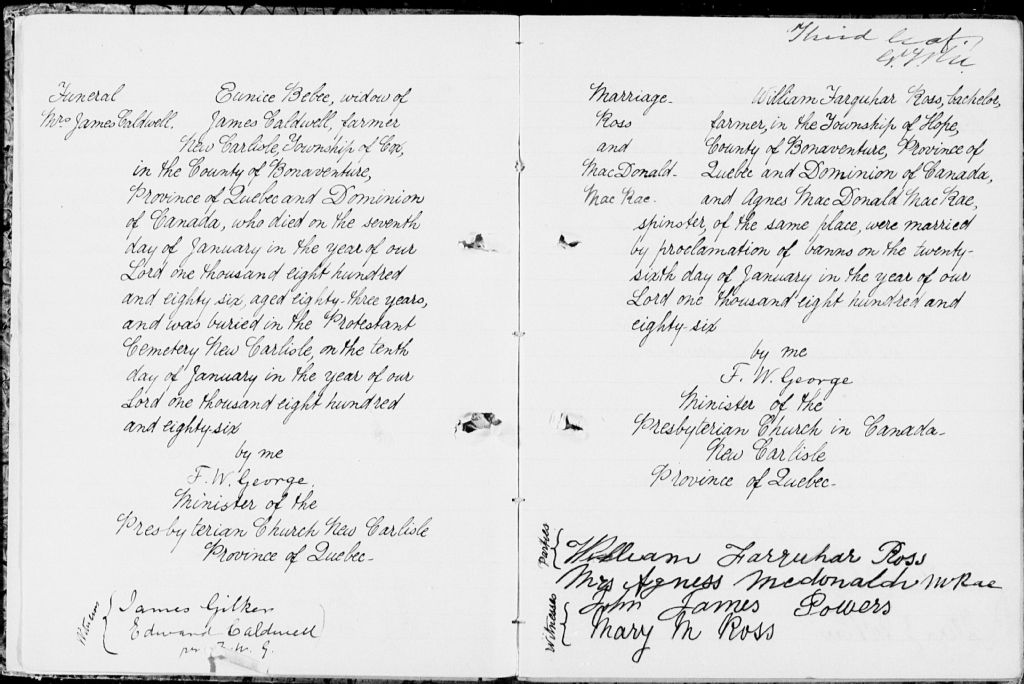 Funeral
Mrs James Caldwell.
Eunice Bebee, widow of
James Caldwell, farmer
New Carlisle, Township of Cox,
in the County of Bonaventure,
Province of Quebec and Dominion
of Canada, who died on the seventh
day of January in the year of our
Lord one thousand eight hundred
and eighty six, aged eighty-three years,
and was buried in the Protestant
Cemetery New Carlisle, on the tenth
day of January in the year of our
Lord one thousand eight hundred
and eighty-six
by me
F. W. George.
Minister of the
Presbyterian Church New Carlisle
Province of Quebec-
Witnesses
James Gilker
Edward Caldwell
per F. W. G.
Third leaf.
Marriage-
Ross
and
MacDonald-
MacRae.
William Farquhar Ross, bachelor,
farmer, in the Township of Hope,
County of Bonaventure, Province of
Quebec and Dominion of Canada,
and Agnes MacDonald MacRae,
spinster, of the same place, were married
by proclamation of banns on the twenty-
sixth day of January in the year of our
Lord one thousand eight hundred and
eighty-six
by me
F. W. George
Minister of the
Presbyterian Church in Canada-
New Carlisle
Province of Quebec-
Parties
William Farquhar Ross
Mrs Agness Mcdonald McRae
Witnesses
John James Powers
Mary M Ross